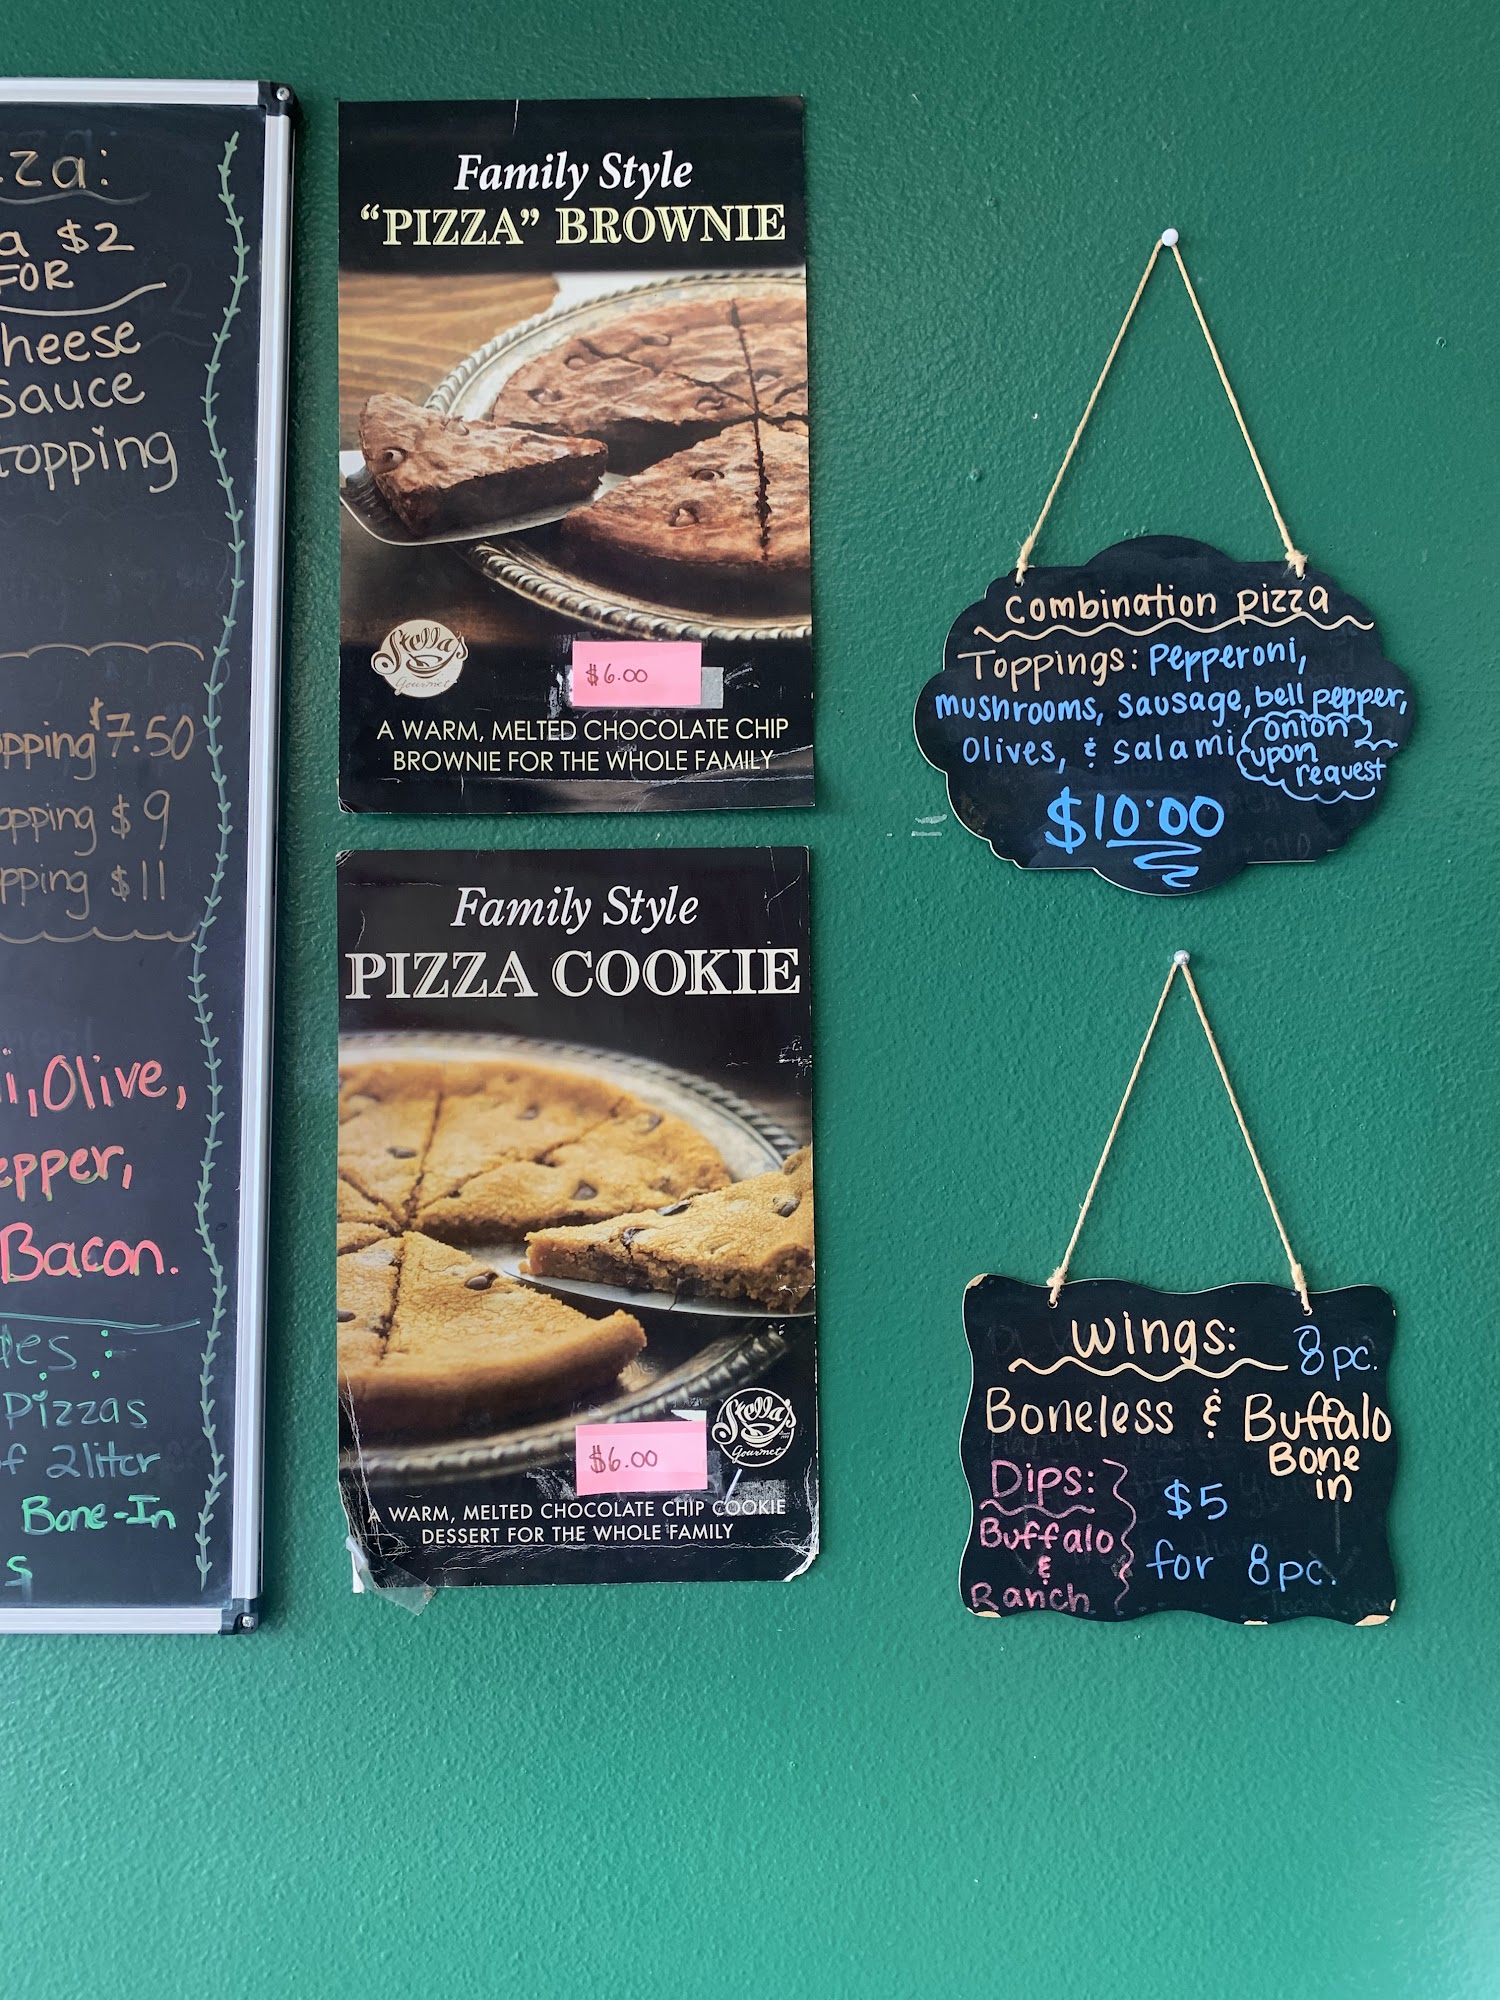 a $2
FOR
heese
sauce
topping
$7.50
$9
$11
Olive,
Bacon.
Pizzas
2 liter
Bone-In
Family Style
“PIZZA” BROWNIE
Stella's
Gourmet
$6.00
A WARM, MELTED CHOCOLATE CHIP
BROWNIE FOR THE WHOLE FAMILY
Family Style
PIZZA COOKIE
Stella's
Gourmet
$6.00
A WARM, MELTED CHOCOLATE CHIP COOKIE
DESSERT FOR THE WHOLE FAMILY
Combination pizza
Toppings: Pepperoni,
mushrooms, sausage, bell pepper,
Olives, & salami
onion
upon
request
$10.00
Wings: 8 pc.
Boneless & Buffalo
Bone
in
Dips:
Buffalo
&
Ranch
$5
for 8pc.